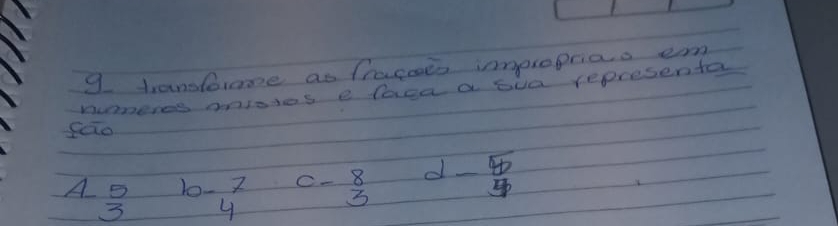 9- transforme as frações improprias em
numeros mistos e faça a sua representa
ção
A- 5/3 b- 7/4 c- 8/3 d-